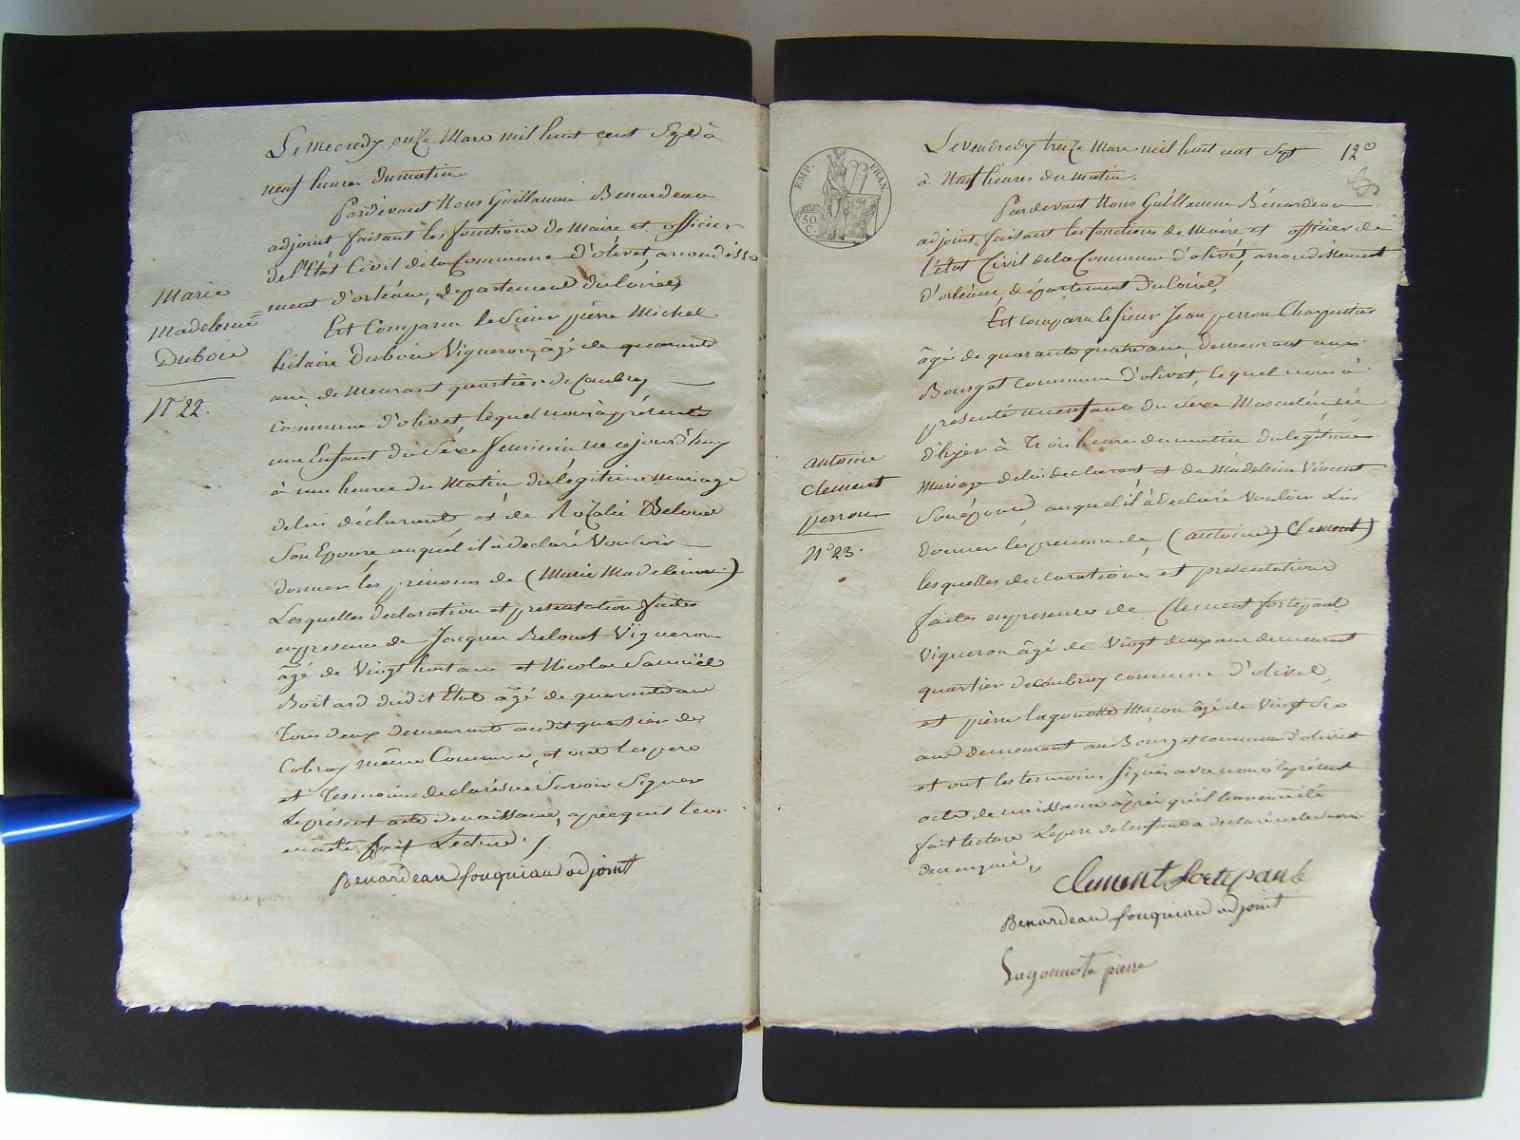 Le mecredy onze Mars mil huit cent Sept à
neuf heures du matin
Pardevant Nous Guillaume Benardeau
adjoint faisant les fonctions de Maire et officier
de l'Etat Civil de la Commune d'olivet, arrondisse
ment d'orléans, departement du loiret
Est Comparu le Sieur pierre Michel
hilaire Dubois Vigneron, âgé de quarante
ans demeurant quartier de Caubray
commune d'olivet, lequel nous à présenté
une Enfant du Sexe feminin né cejourd'huy
à une heure du Matin du légitime mariage
de lui déclarant et de Rozalie Belouet
Son Epouse auquel il à declaré Vouloir
donner les prenoms de (Marie Madeleine)
Lesquelles declaration et presentation faites
en presence de Jacques Belouet Vigneron
âgé de Vingt huit ans et Nicolas Samuël
Boitard dudit Etat âgé de quarente ans
tous deux demeurants audit quartier de
Cobray même Commune, et ont les pere
et temoins declarés ne Savoir Signer
Le présent acte de naissance, après qu'il leur
en a été fait Lecture
Benardeau fouquiau adjoint
Marie
Madeleine
Dubois
N° 22.
Le Vendredy treize Mars mil huit cent Sept
12
à Neuf heures du matin.
Pardevant Nous Guillaume Bénardeau
adjoint faisant les fonctions de Maire et officier de
l'état Civil de la Commune d'olivet, arrondissement
d'orléans, département du Loiret,
Est comparu le sieur Jean perron Charpentier
âgé de quarante quatre ans, demeurant aux
Bourg et commune d'olivet, lequel nous à
présenté un enfant du sexe Masculin né
d'hyer à trois heures du matin du légitime
Mariage de lui declarant et de Madeleine Vincent
Son épouse auquel il à declaré Vouloir Lui
donner les prenoms de (antoine Clement)
lesquelles declarations et presentations
faites en presence de Clement fortepaul
Vigneron âgé de Vingt deux ans demeurant
quartier de Caubray commune d'olivet,
et pierre Lagonotte Maçon âgé de Vingt Six
ans demeurant au Bourg et commune d'olivet
et ont les temoins Signés avec nous le présent
acte de naissance après qu'il leur en a été
fait lecture Le pere de l'enfant a declaré ne le savoir
de ce enquis
Clement fortepaul
Benardeau fouquiau adjoint
Lagonnote pierre
EMP. FRAN.
50
C.
antoine
Clement
perron
N° 23.